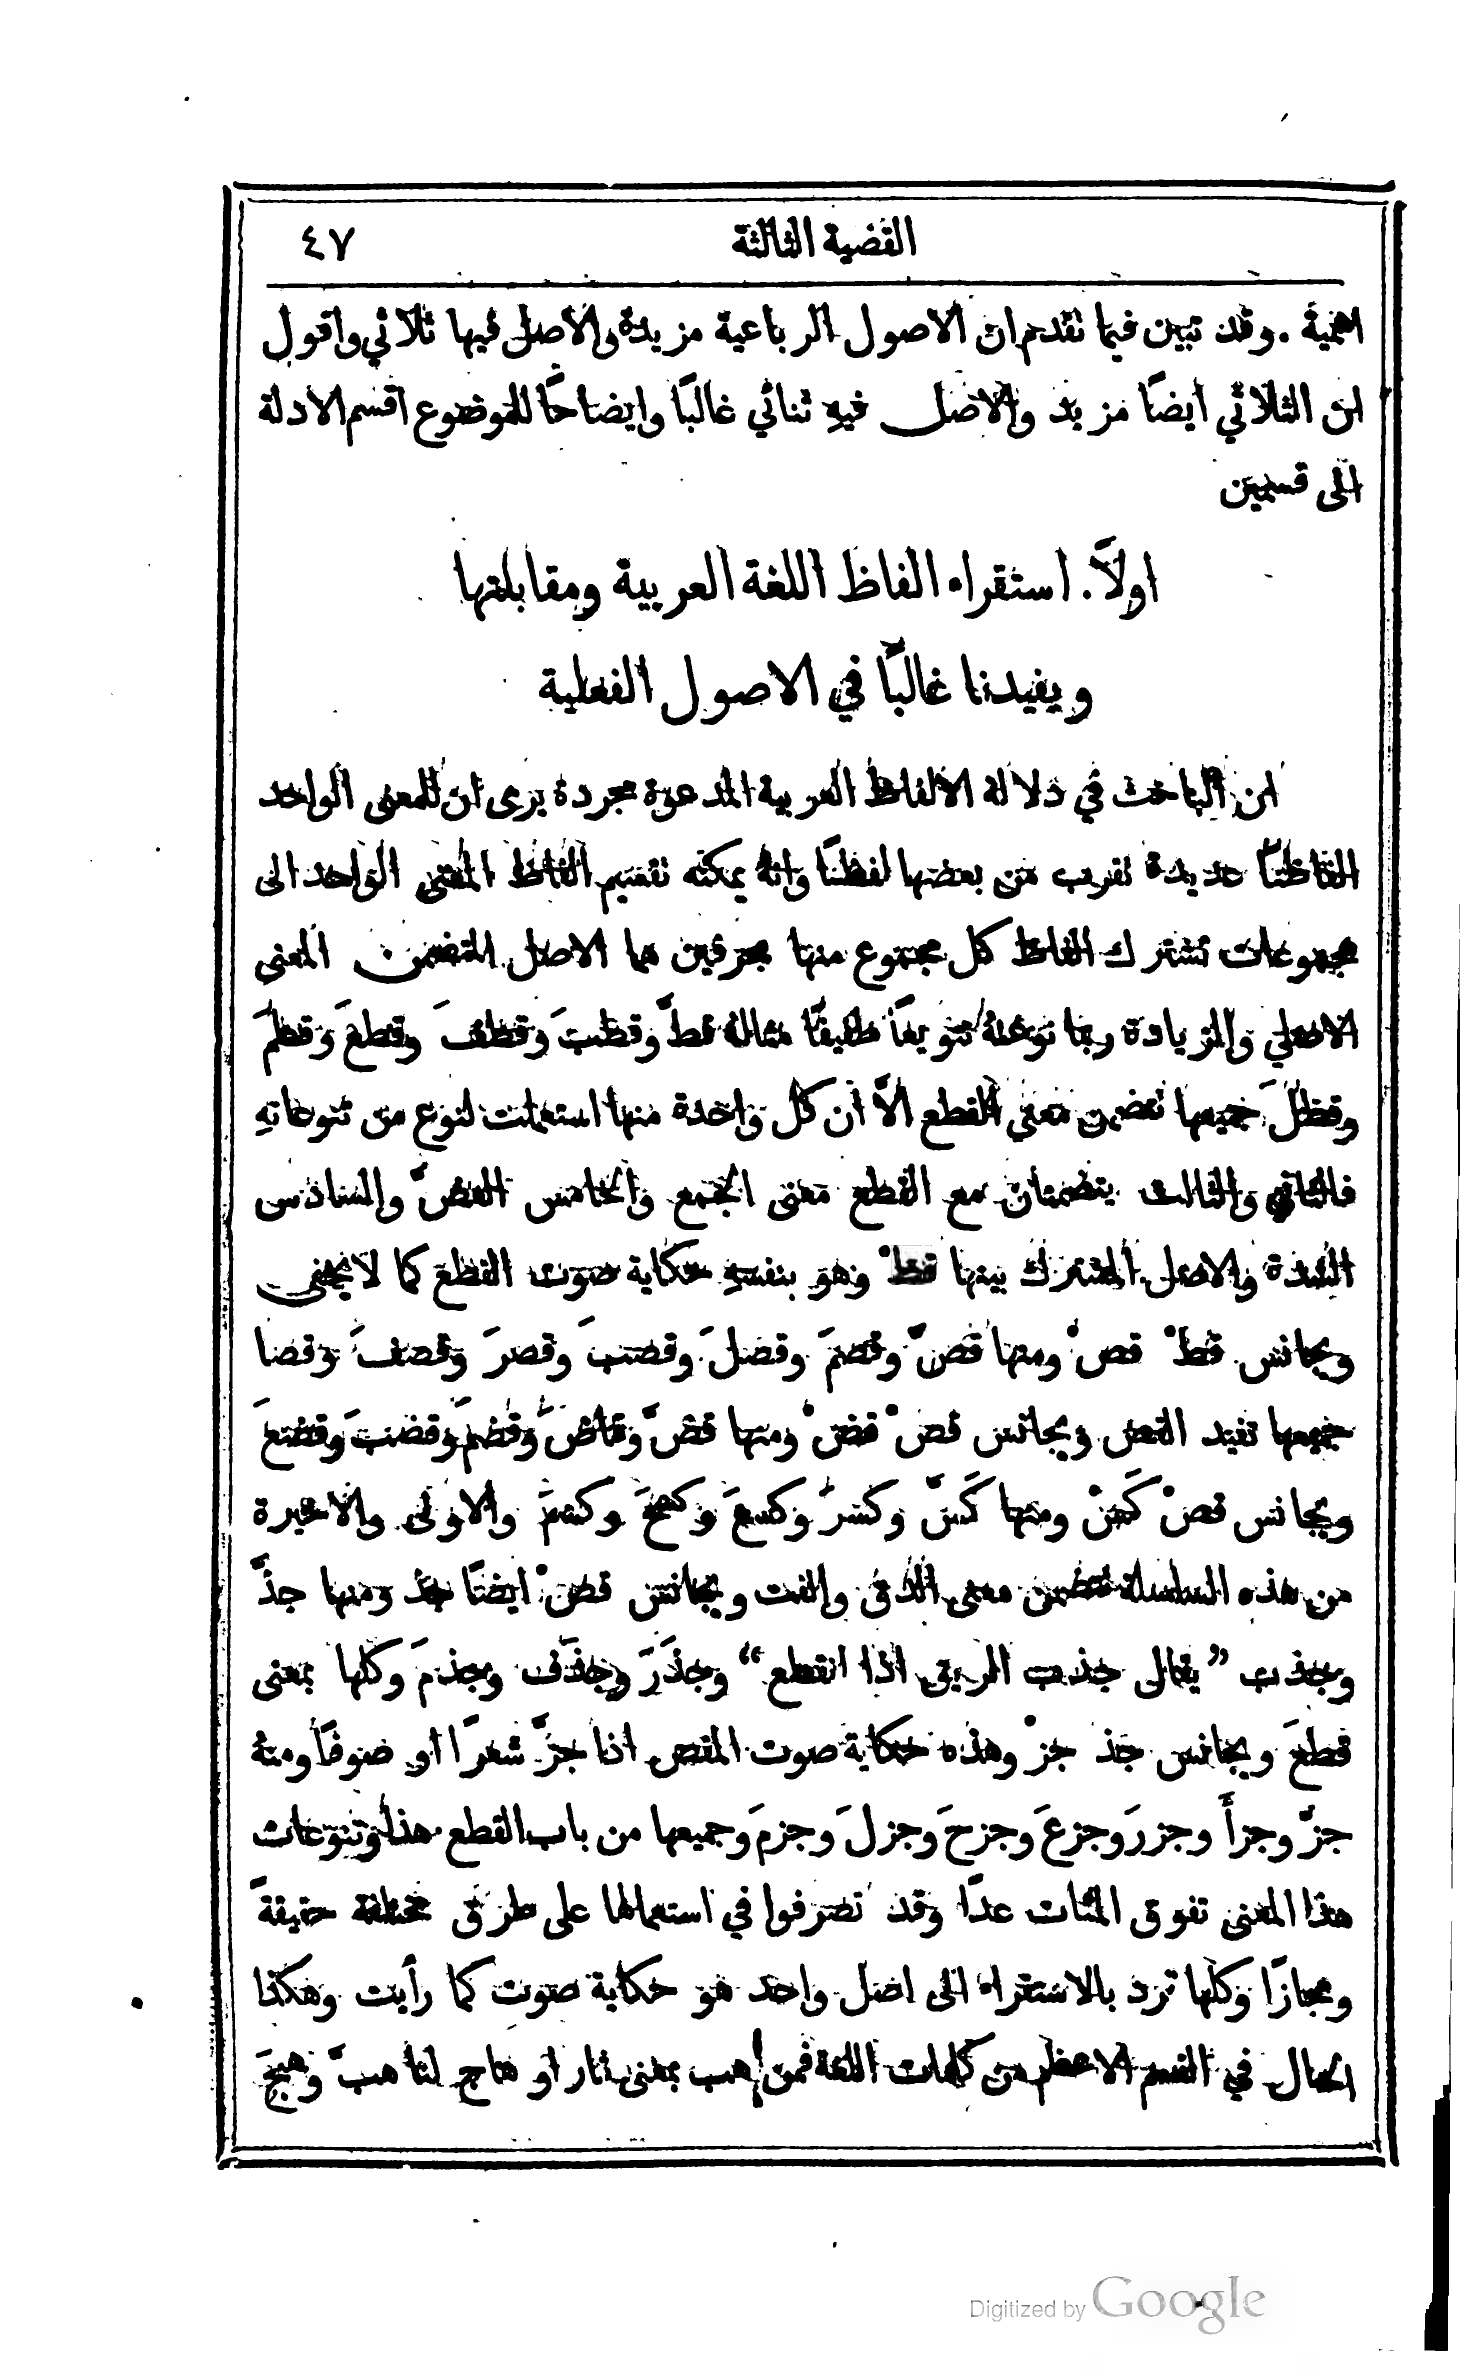 القضية الثالثة ٤٧
اهمية . وقد تبين فيما تقدم ان الاصول الرباعية مزيدة والاصل فيها ثلاثي واقول
ان الثلاثي ايضًا مزيد والاصل فيهِ ثنائي غالبًا وايضاحًا للموضوع اقسم الادلة
الى قسمين
اولاً . استقراء الفاظ اللغة العربية ومقابلتها
ويفيدنا غالبًا في الاصول الفعلية
ان الباحث في دلالة الالفاظ العربية المدعوة مجردة يرى ان للمعنى الواحد
الفاظًا عديدة تقرب من بعضها لفظًا وانهُ يمكنه تقسيم الفاظ المعنى الواحد الى
مجموعات تشترك الفاظ كل مجموع منها بحرفين هما الاصل المتضمن المعنى
الاصلي والزيادة ربما نوعتهُ تنويعًا طفيفًا مثالهُ قطَّ وقطبَ وقطفَ وقطعَ وقطمَ
وقطلَ جميعها تضمن معنى القطع الاَّ ان كل واحدة منها استعملت لنوع من تنوعاتهِ
فالثاني والثالث يتضمنان مع القطع معنى الجمع والخامس العضَّ والسادس
الشدة والاصل المشترك بينها قطْ وهو بنفسهِ حكاية صوت القطع كما لا يخفى
ويجانس قطْ قصْ ومنها قصَّ وقصمَ وقصلَ وقصبَ وقصرَ وقصفَ وقصا
جميعها تفيد القص ويجانس قصْ قضْ ومنها قضَّ وقاضَ وقضمَ وقضبَ وقضعَ
ويجانس قصْ كَسْ ومنها كَسَّ وكسرَ وكسعَ وكسحَ وكسمَ والاولى والاخيرة
من هذه السلسلة تتضمن معنى الدق والفت ويجانس قصْ ايضًا جذ ومنها جذَّ
وجذب ”يقال جذب الريق اذا انقطع“ وجذَرَ وجذَف وجذمَ وكلها بمعنى
قطعَ ويجانس جذ جزْ وهذه حكاية صوت المقص اذا جزَّ شعرًا او صوفًا ومنهُ
جزَّ وجزأَ وجزرَ وجزعَ وجزحَ وجزلَ وجزمَ وجميعها من باب القطع هذا وتنوعات
هذا المعنى تفوق المئات عدًّا وقد تصرفوا في استعمالها على طرق مختلفة حقيقةً
ومجازًا وكلها ترد بالاستقراء الى اصل واحد هو حكاية صوت كما رأيت وهكذا
الحال في القسم الاعظم من كلمات اللغة فمن هب بمعنى ثار او هاج لنا هبَّ وهبجَ
Digitized by Google